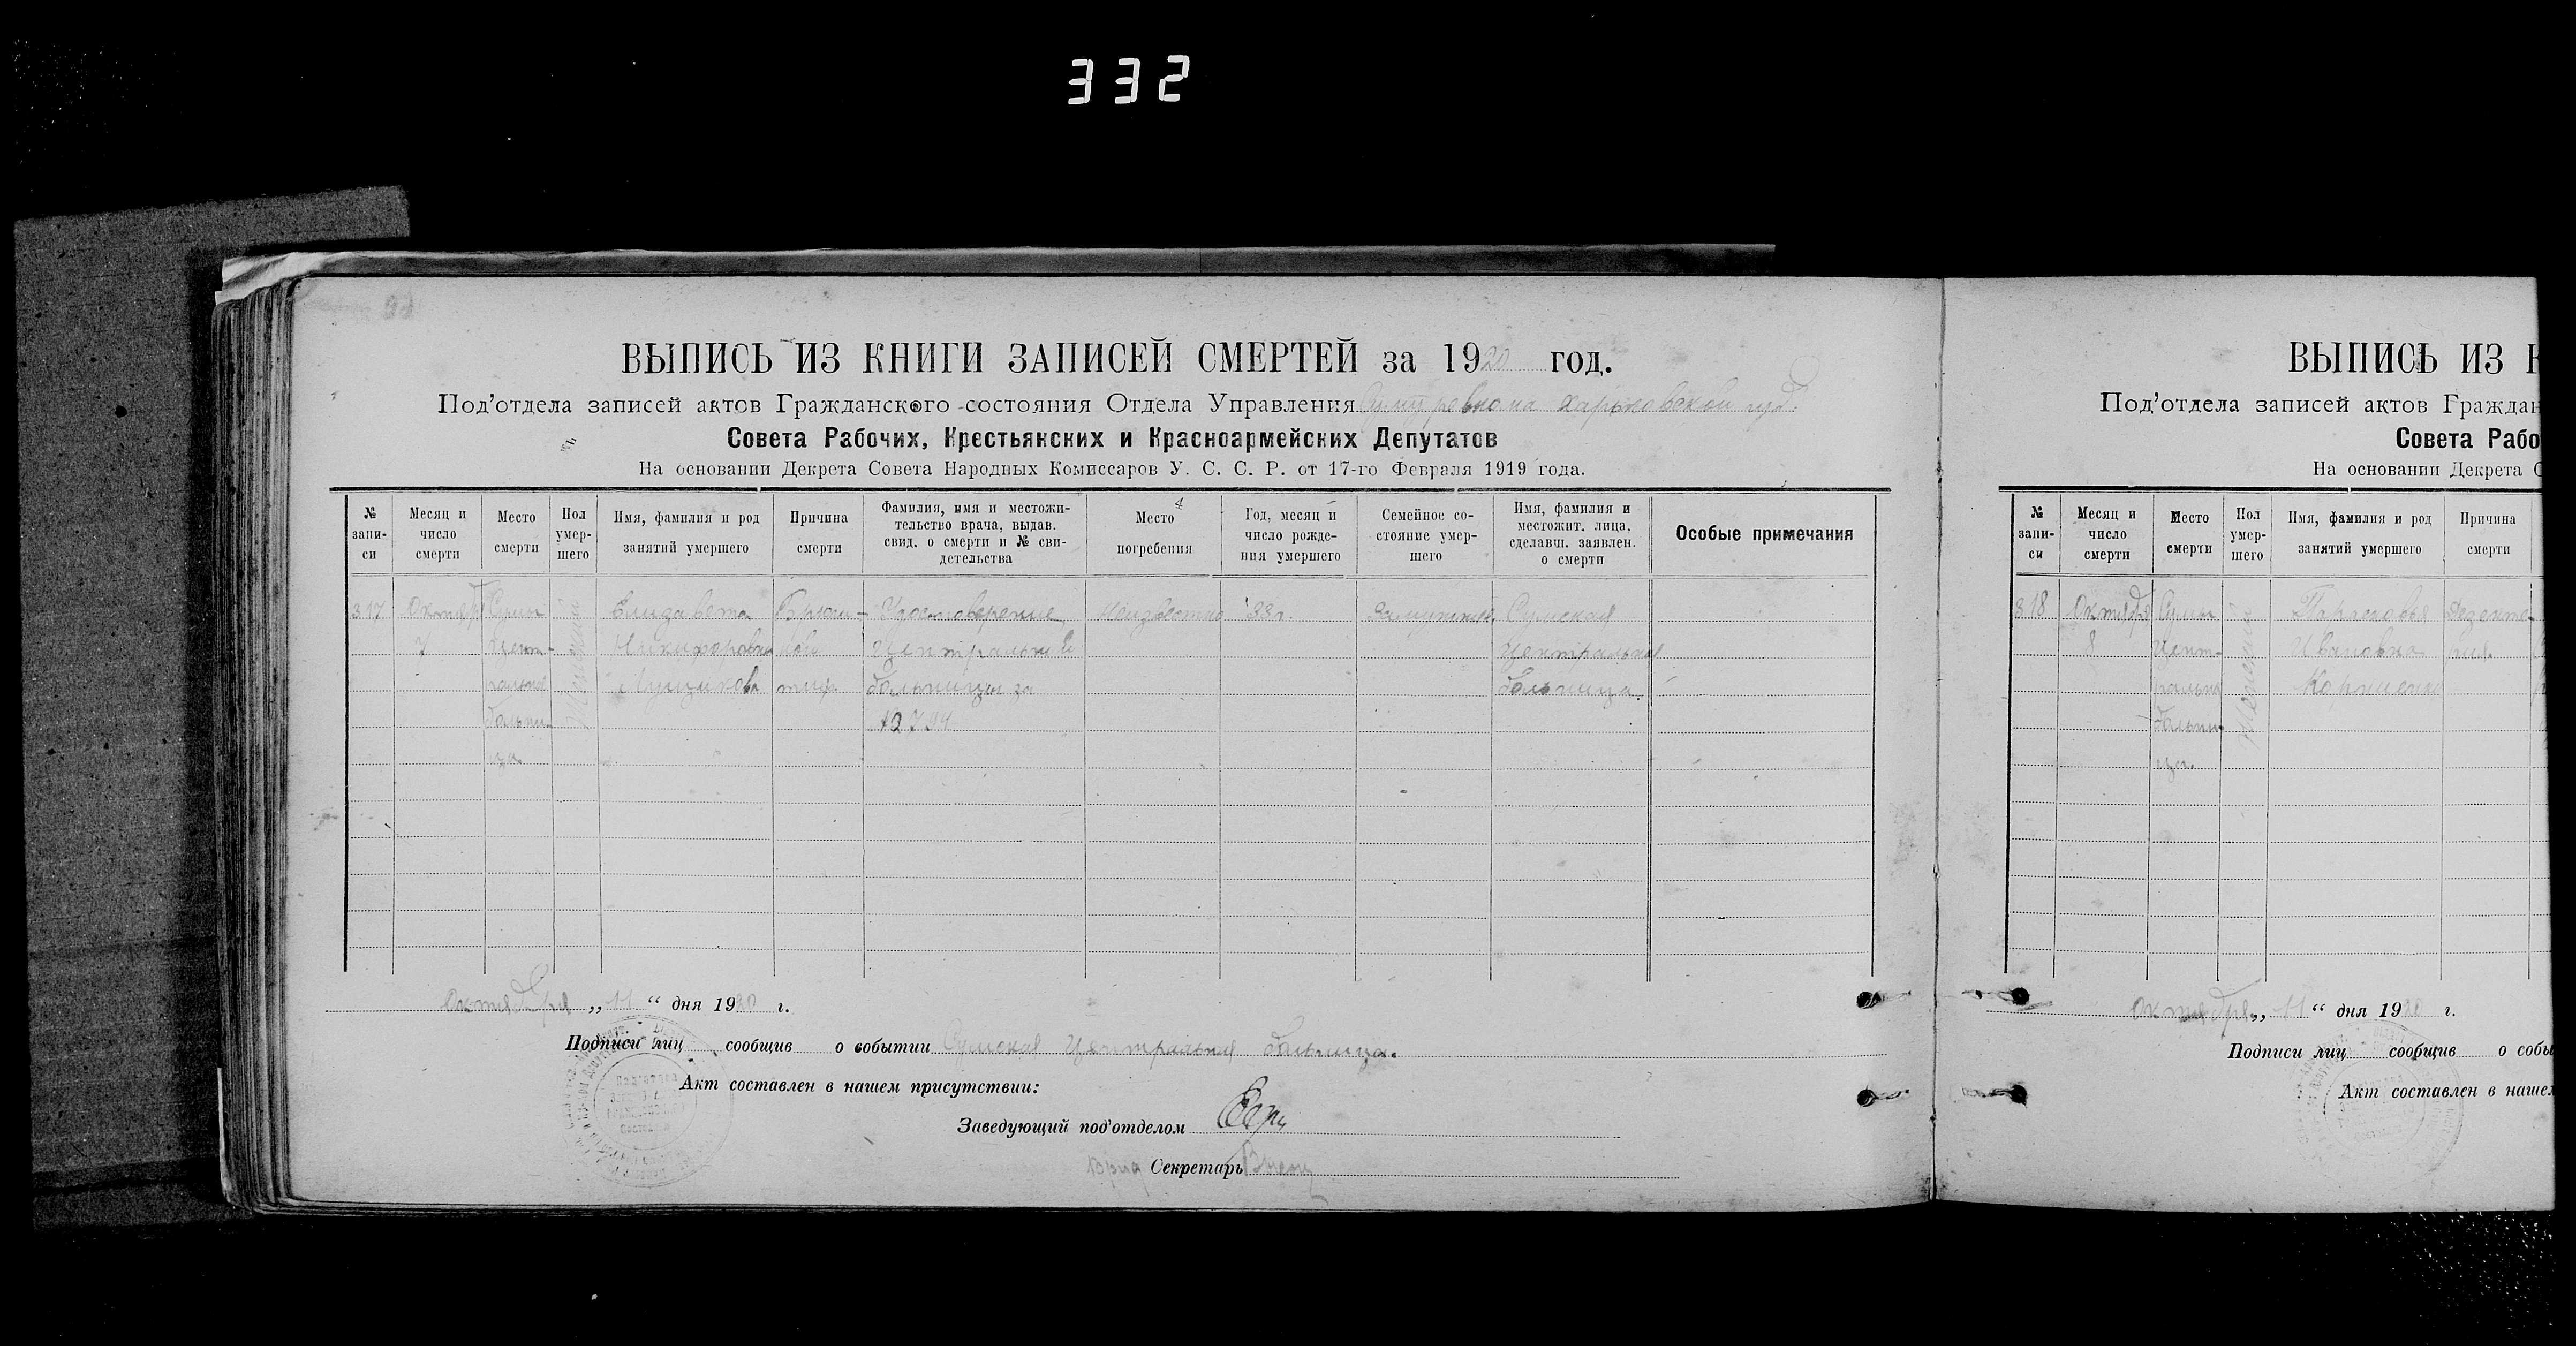 332
ВЫПИСЬ ИЗ КНИГИ ЗАПИСЕЙ СМЕРТЕЙ за 1920 год.
Под'отдела записей актов Гражданского состояния Отдела Управления Харьковской губ.
Совета Рабочих, Крестьянских и Красноармейских Депутатов
На основании Декрета Совета Народных Комиссаров У. С. С. Р. от 17-го Февраля 1919 года.
№ запи-си
Месяц и число смерти
Место смерти
Пол умер-шего
Имя, фамилия и род занятий умершего
Причина смерти
Фамилия, имя и местожи-тельство врача, выдав. свид. о смерти и № сви-детельства
Место погребения
Год, месяц и число рожде-ния умершего
Семейное со-стояние умер-шего
Имя, фамилия и местожит. лица, сделавш. заявлен. о смерти
Особые примечания
317 Октября Сумы Женский Елизавета Брюш- Удостоверение неизвестно 33 г. Сумская
7 Цент- Никифоровна ной Центральной Центральная
ральная тиф больницы за больница.
больни- №
ца.
Октября „11“ дня 1920 г.
Подписи лиц сообщив о событии Сумская Центральная больница.
Акт составлен в нашем присутствии:
Заведующий под'отделом
Врид Секретарь
ВЫПИСЬ ИЗ К
Под'отдела записей актов Граждан
Совета Рабо
На основании Декрета С
№ запи-си
Месяц и число смерти
Место смерти
Пол умер-шего
Имя, фамилия и род занятий умершего
Причина смерти
318 Октября Сумы Женский Прасковья Дезенте-
8 Цент- Ивановна рия
ральная
больни-
ца.
Октября „11“ дня 1920 г.
Подписи лиц сообщив о собы
Акт составлен в нашем